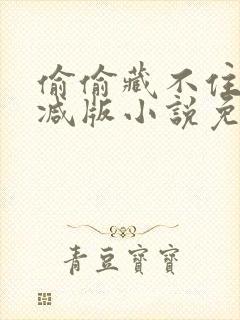 偷偷藏不住
减版小說免
青豆寶寶